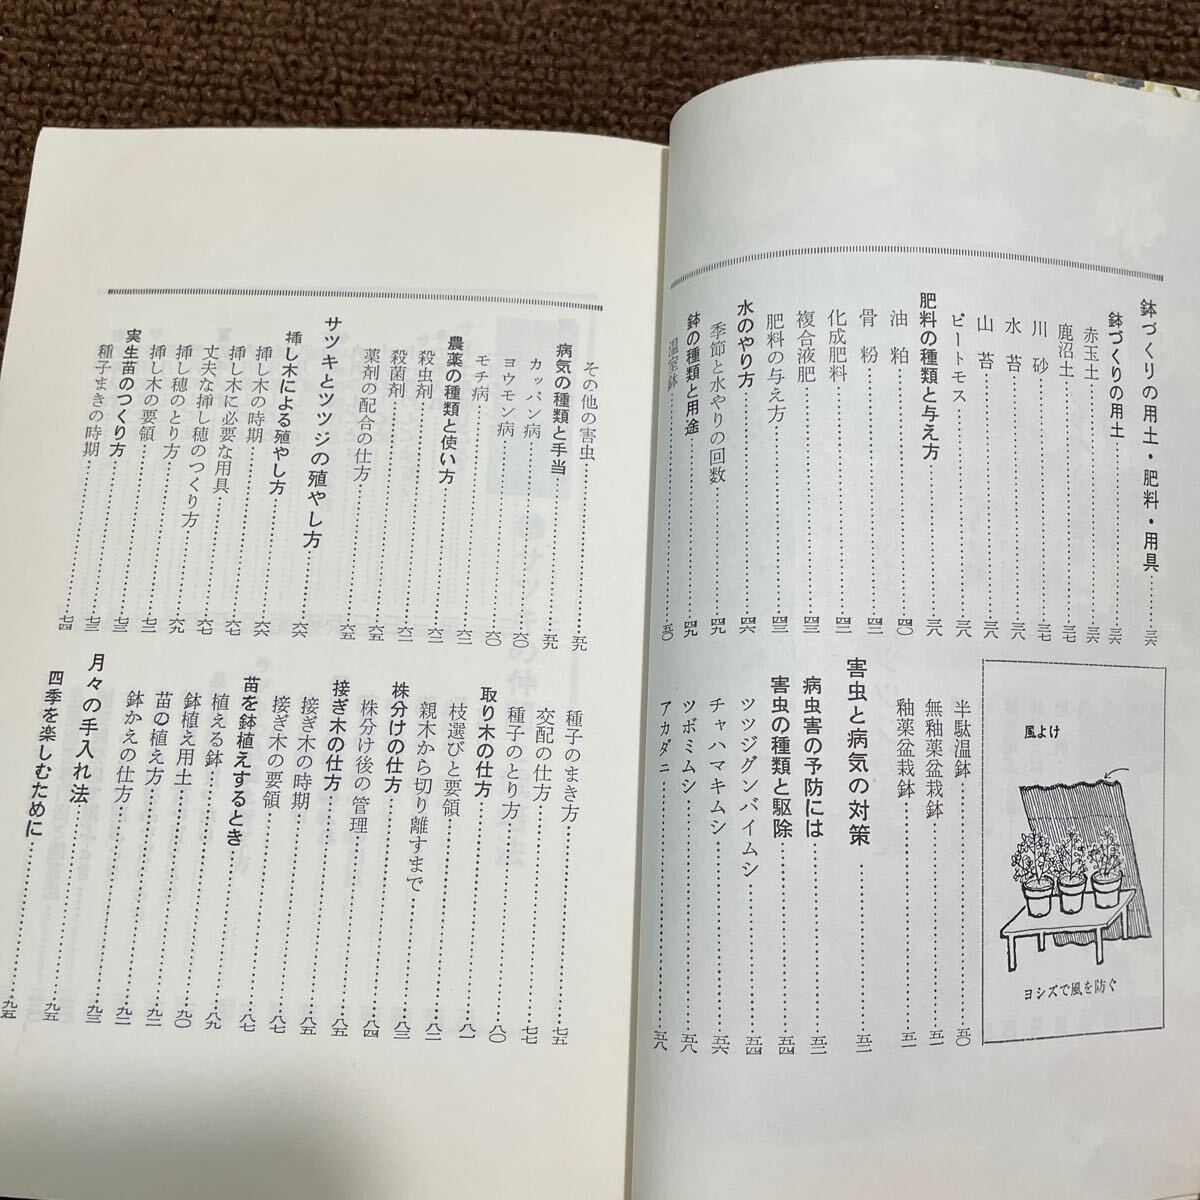 鉢づくりの用土・肥料・用具……三六
鉢づくりの用土……三六
赤玉土……三六
鹿沼土……三七
川砂……三七
水苔……三八
山苔……三八
ピートモス……三八
肥料の種類と与え方……三八
油粕……四〇
骨粉……四二
化成肥料……四二
複合液肥……四三
肥料の与え方……四三
水のやり方……四六
季節と水やりの回数……四九
鉢の種類と用途……四九
温室鉢……五〇
風よけ
ヨシズで風を防ぐ
半駄温鉢……五〇
無釉薬盆栽鉢……五一
釉薬盆栽鉢……五一
害虫と病気の対策……五二
病虫害の予防には……五二
害虫の種類と駆除……五四
ツツジグンバイムシ……五四
チャハマキムシ……五六
ツボミムシ……五八
アカダニ……五八
その他の害虫……五九
病気の種類と手当……五九
カッパン病……六〇
ヨウモン病……六〇
モチ病……六〇
農薬の種類と使い方……六二
殺虫剤……六二
殺菌剤……六二
薬剤の配合の仕方……六五
サツキとツツジの殖やし方……六六
挿し木による殖やし方……六六
挿し木の時期……六六
挿し木に必要な用具……六七
丈夫な挿し穂のつくり方……六七
挿し穂のとり方……六九
挿し木の要領……七二
実生苗のつくり方……七三
種子まきの時期……七三
種子のまき方……七五
交配の仕方……七七
種子のとり方……八〇
取り木の仕方……八〇
枝選びと要領……八一
親木から切り離すまで……八二
株分けの仕方……八三
株分け後の管理……八四
接ぎ木の仕方……八五
接ぎ木の時期……八五
接ぎ木の要領……八七
苗を鉢植えするとき……八七
植える鉢……八九
鉢植え用土……九〇
苗の植え方……九二
鉢かえの仕方……九二
月々の手入れ法……九三
四季を楽しむために……九五